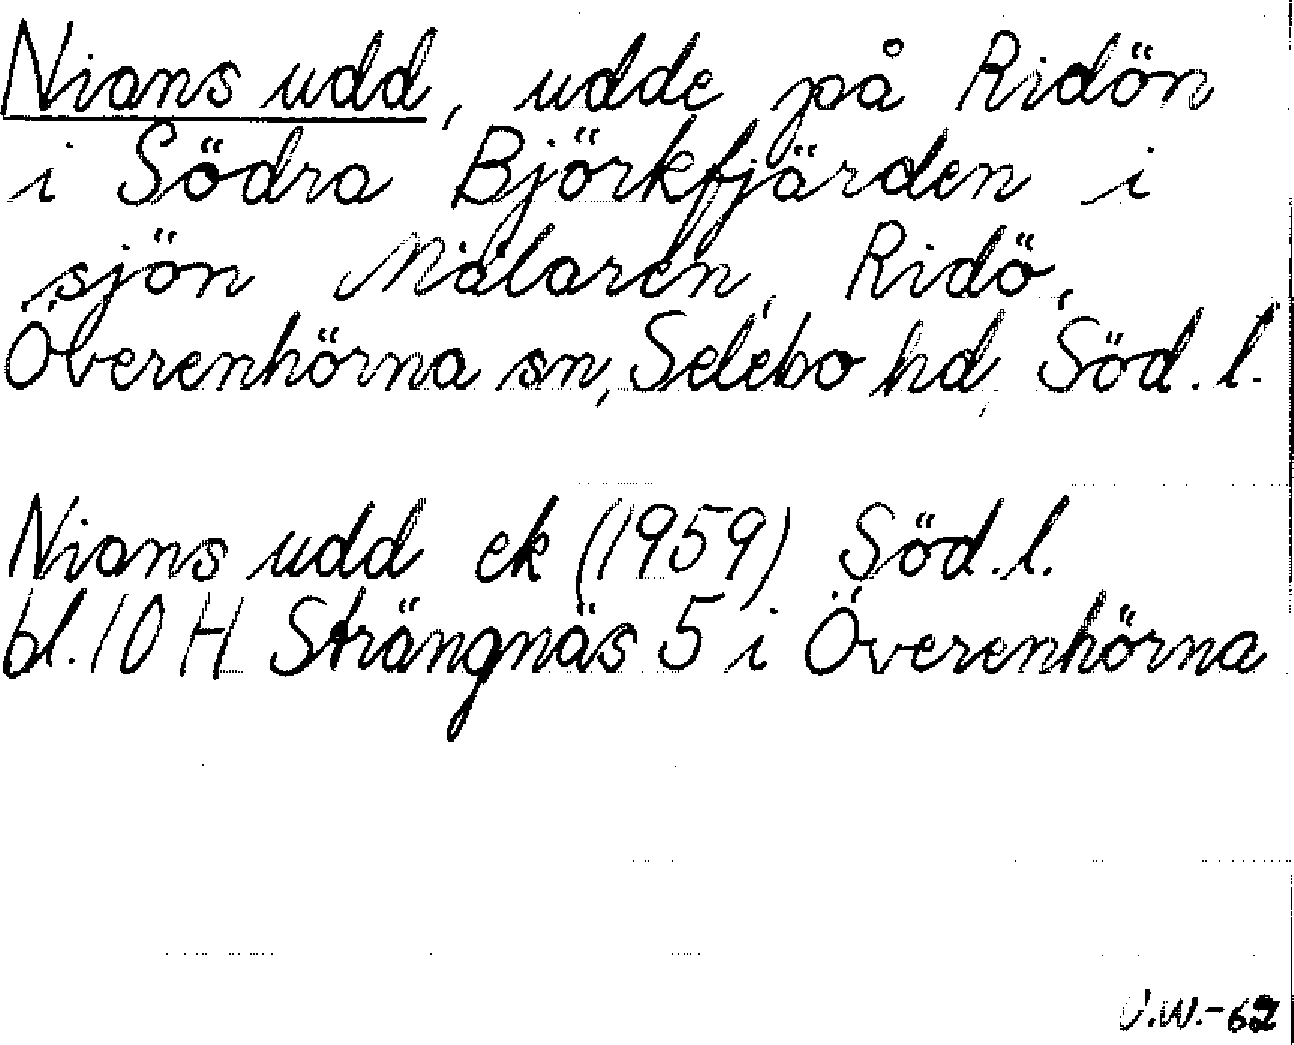 Nians udd, udde på Ridön
i Södra Björkfjärden i
sjön Mälaren, Ridö,
Överenhörna sn, Selebo hd, Söd. l.
Nians udd ek (1959) Söd. l.
bl. 10 H Strängnäs 5 i Överenhörna
U.W.-62